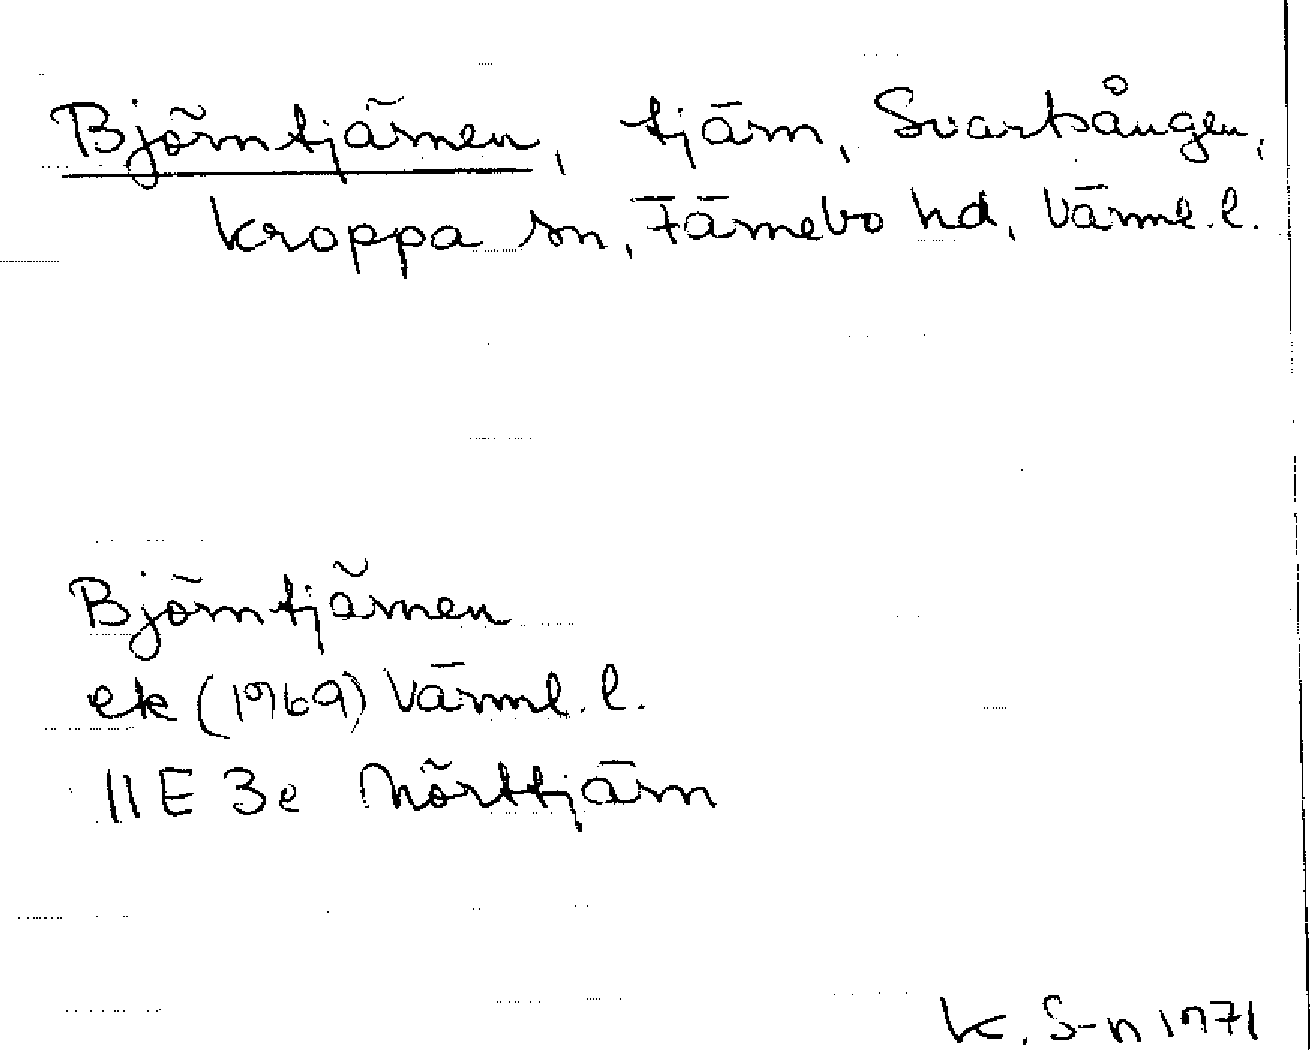 Björntjärnen, tjärn, Svartsången,
Kroppa sn, Färnebo hd, Värml. l.
Björntjärnen
ek (1969) Värml. l.
11E 3e Mörttjärn
K. S-n 1971